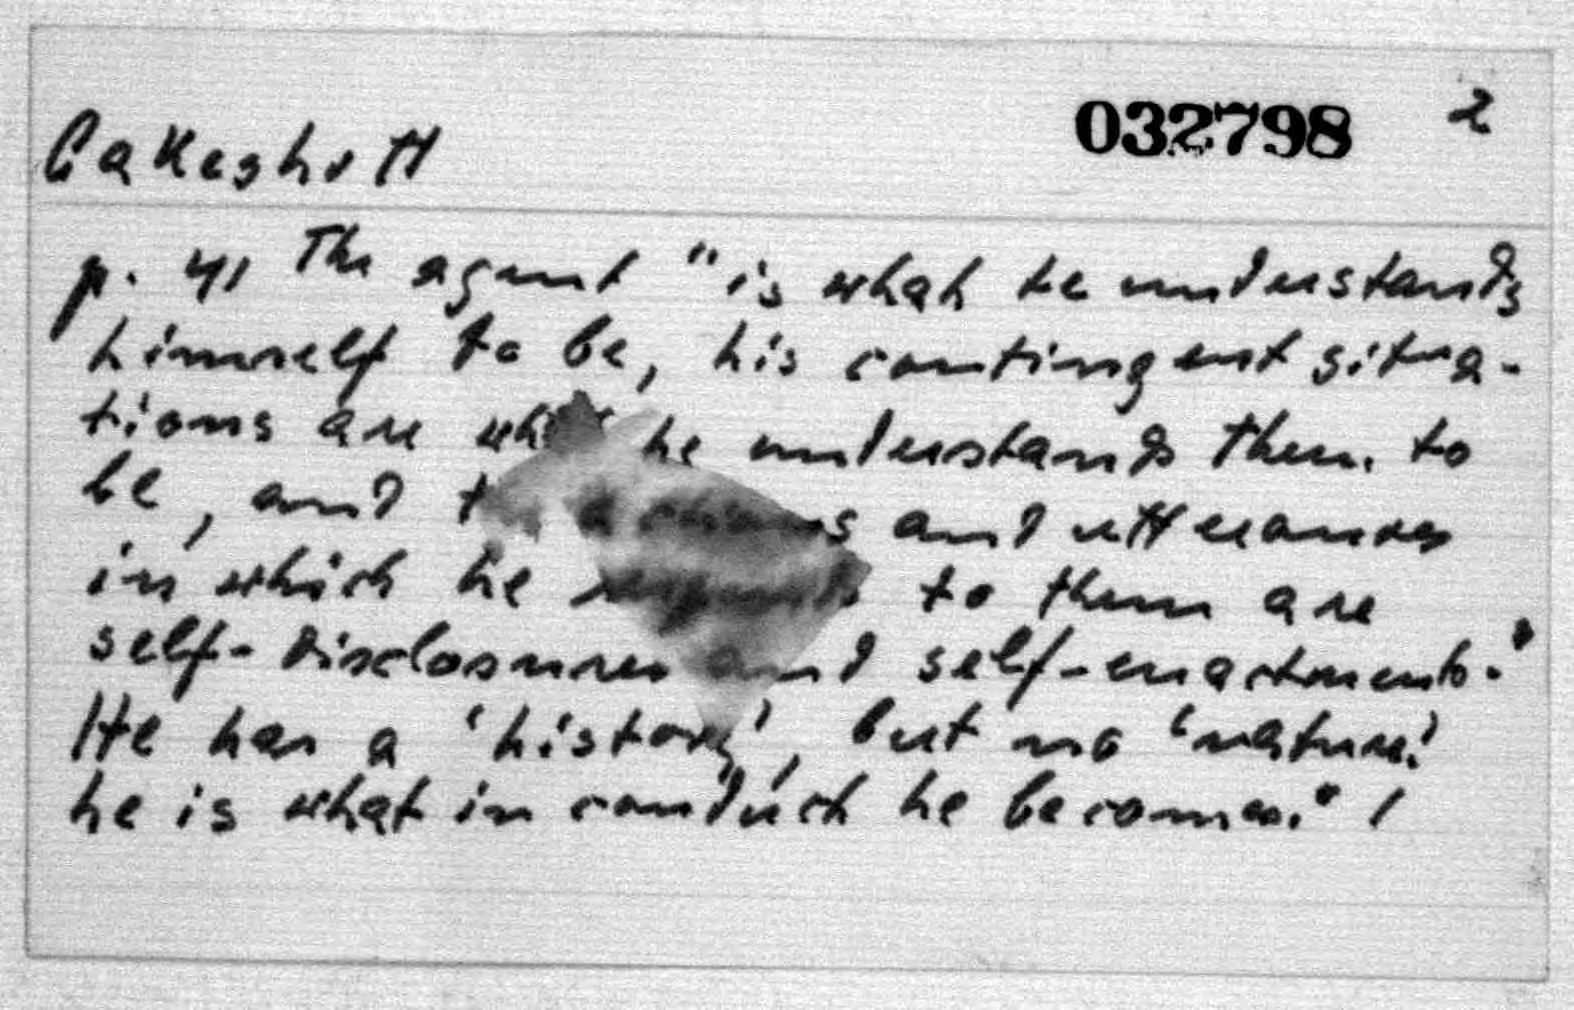 Oakeshott 032798 2
p. 41 The agent "is what he understands
himself to be, his contingent situa-
tions are what he understands them to
be, and the actions and utterances
in which he responds to them are
self-disclosures and self-enactments."
He has a 'history', but no 'nature';
he is what in conduct he becomes." /